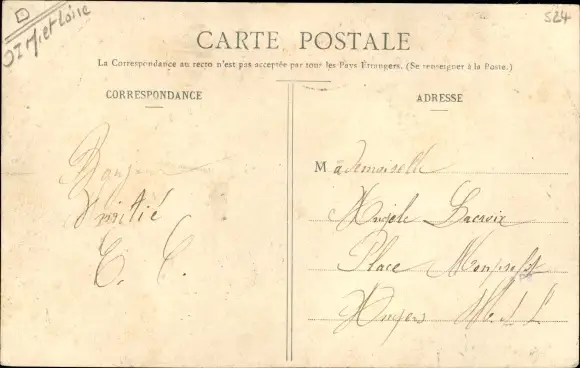 OI M et Loire
524
CARTE POSTALE
La Correspondance au recto n'est pas acceptée par tous les Pays Étrangers. (Se renseigner à la Poste.)
CORRESPONDANCE
Amitié
ADRESSE
Mademoiselle
Lacroix
Place
Angers M. & L